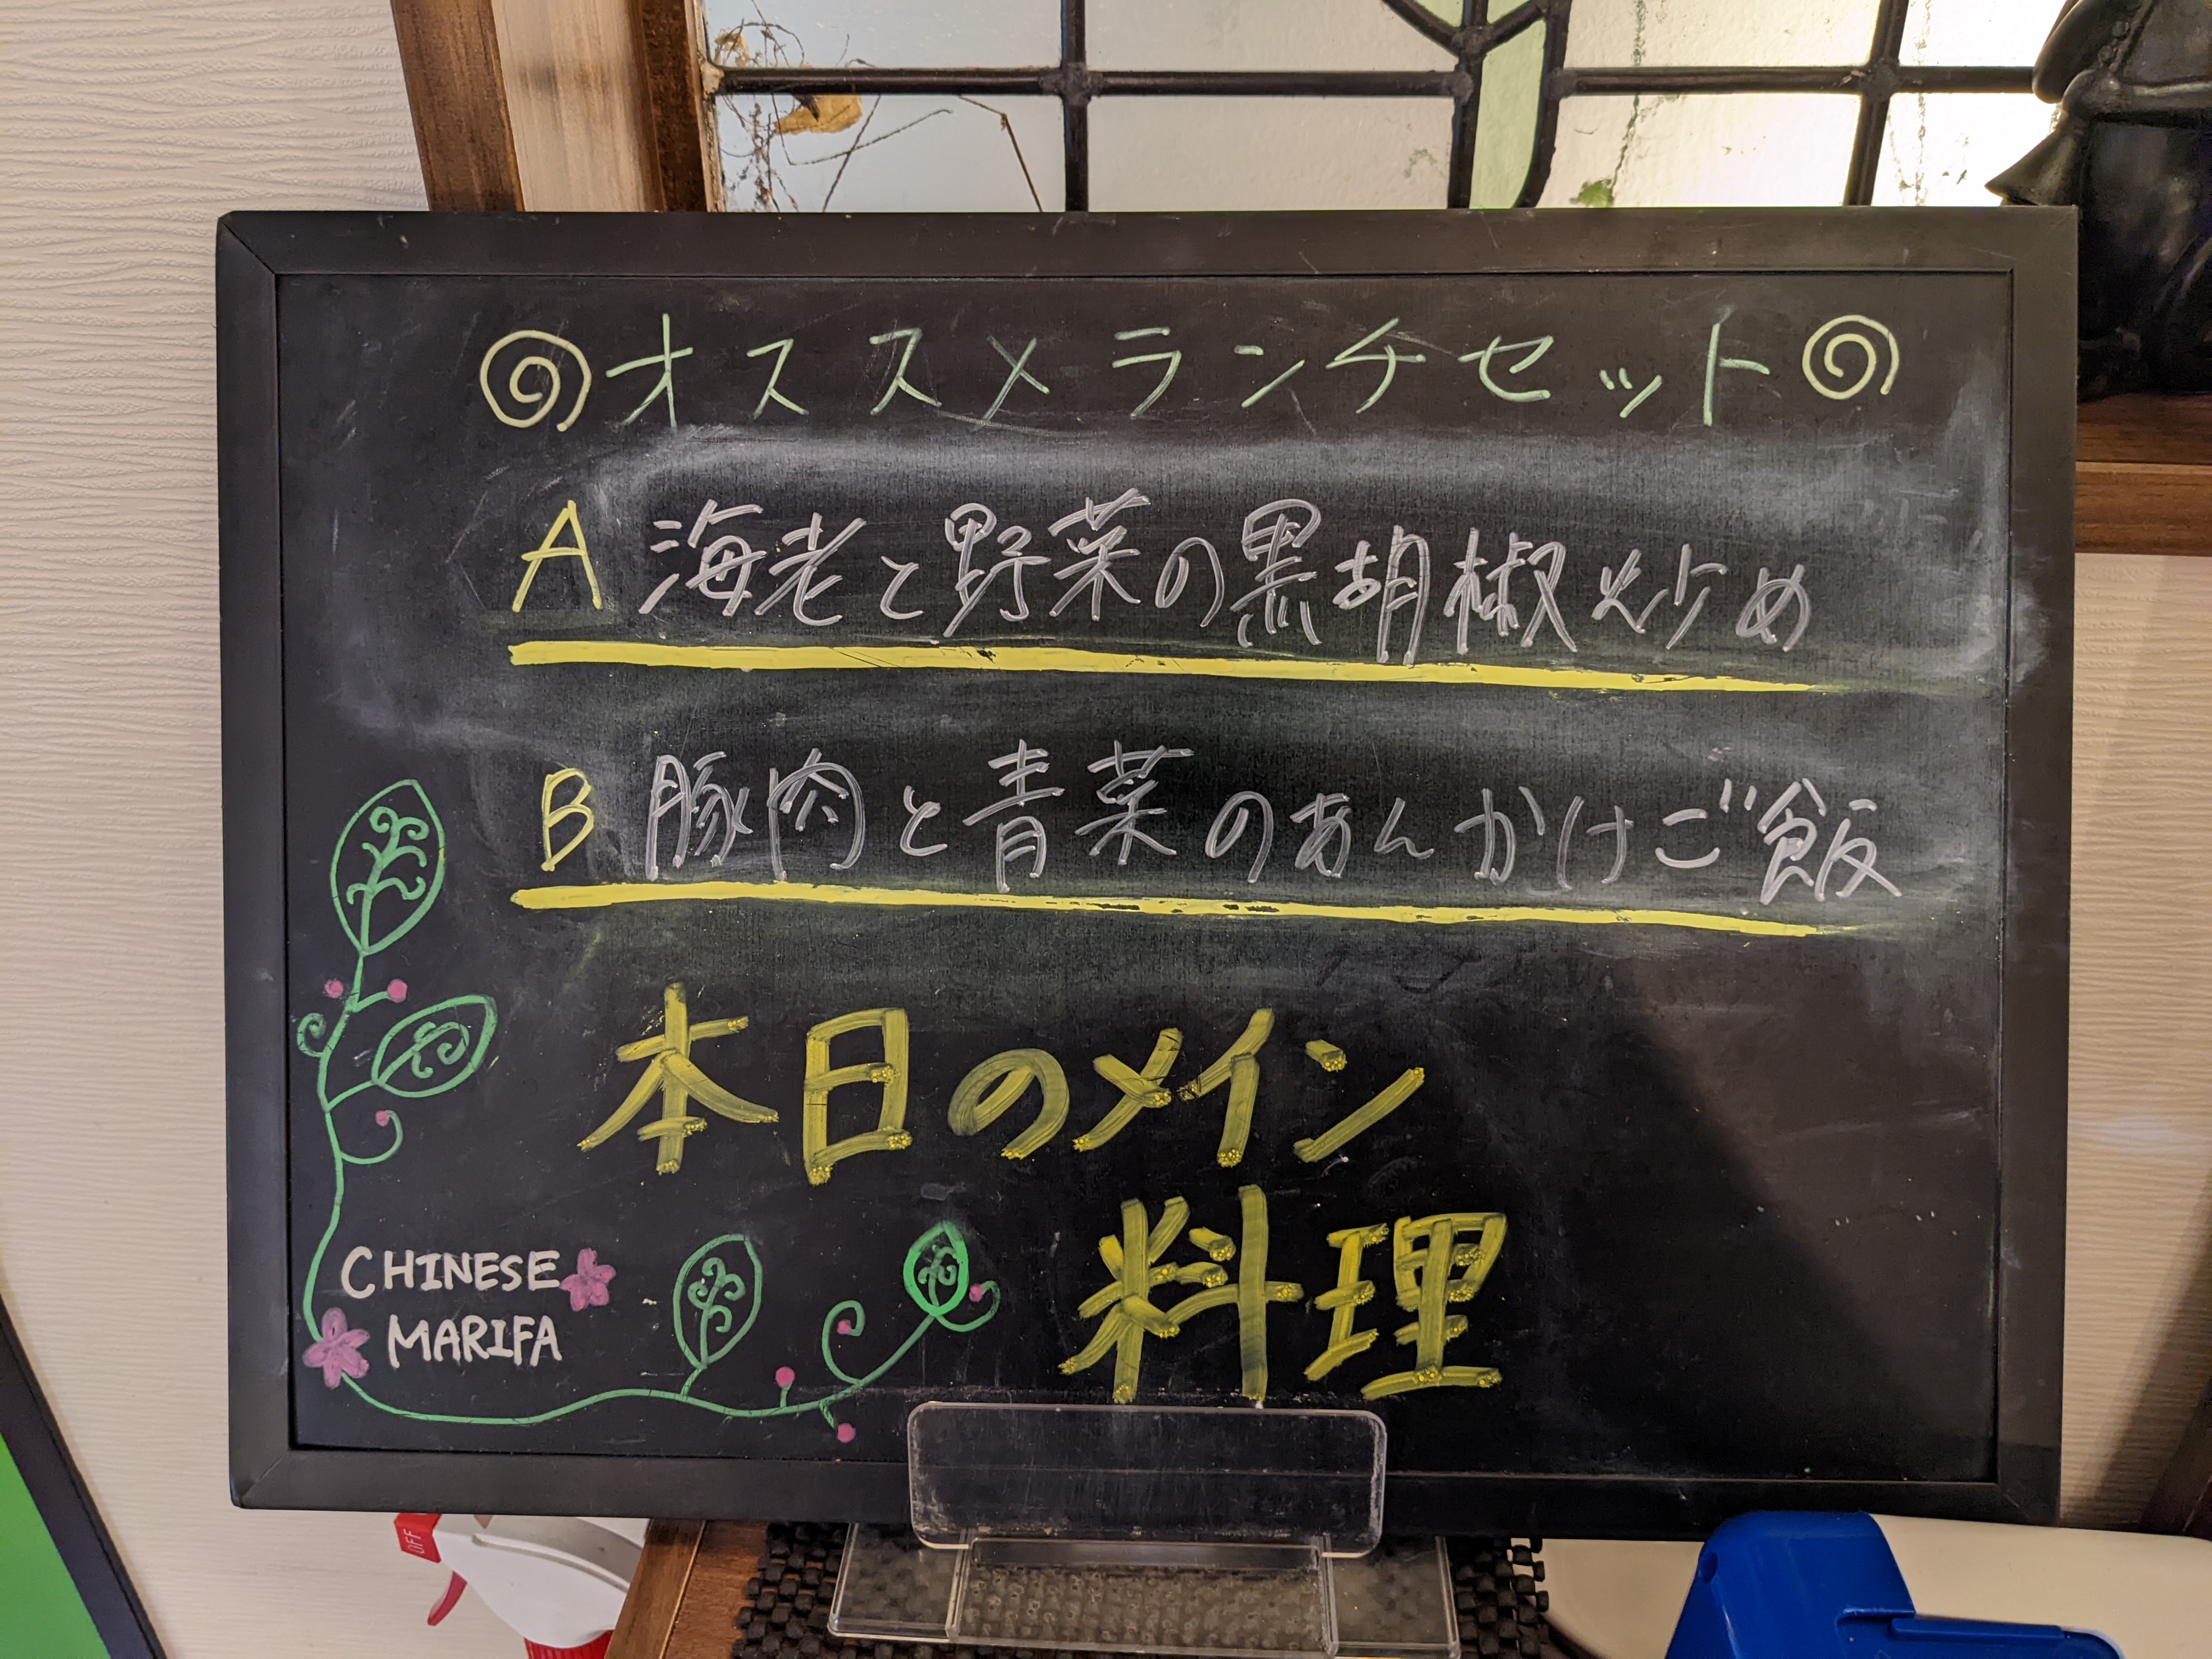 オススメランチセット
A 海老と野菜の黒胡椒炒め
B 豚肉と青菜のあんかけご飯
本日のメイン
料理
CHINESE
MARIFA
OFF